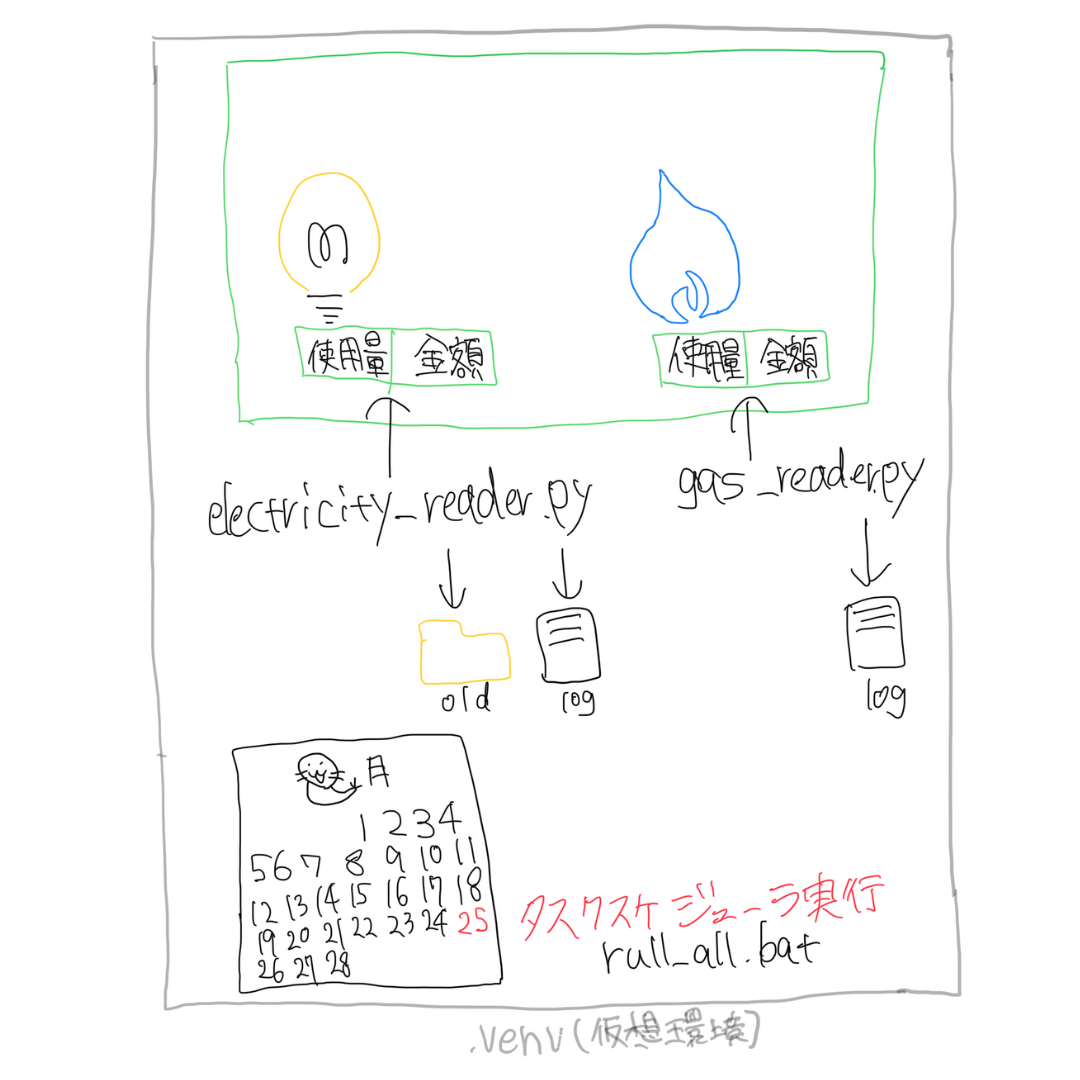 使用量 金額
使用量 金額
electricity_reader.py
gas_reader.py
old
log
log
月
1 2 3 4
5 6 7 8 9 10 11
12 13 14 15 16 17 18
19 20 21 22 23 24 25
26 27 28
タスクスケジューラ実行
rull_all.bat
.venv(仮想環境)